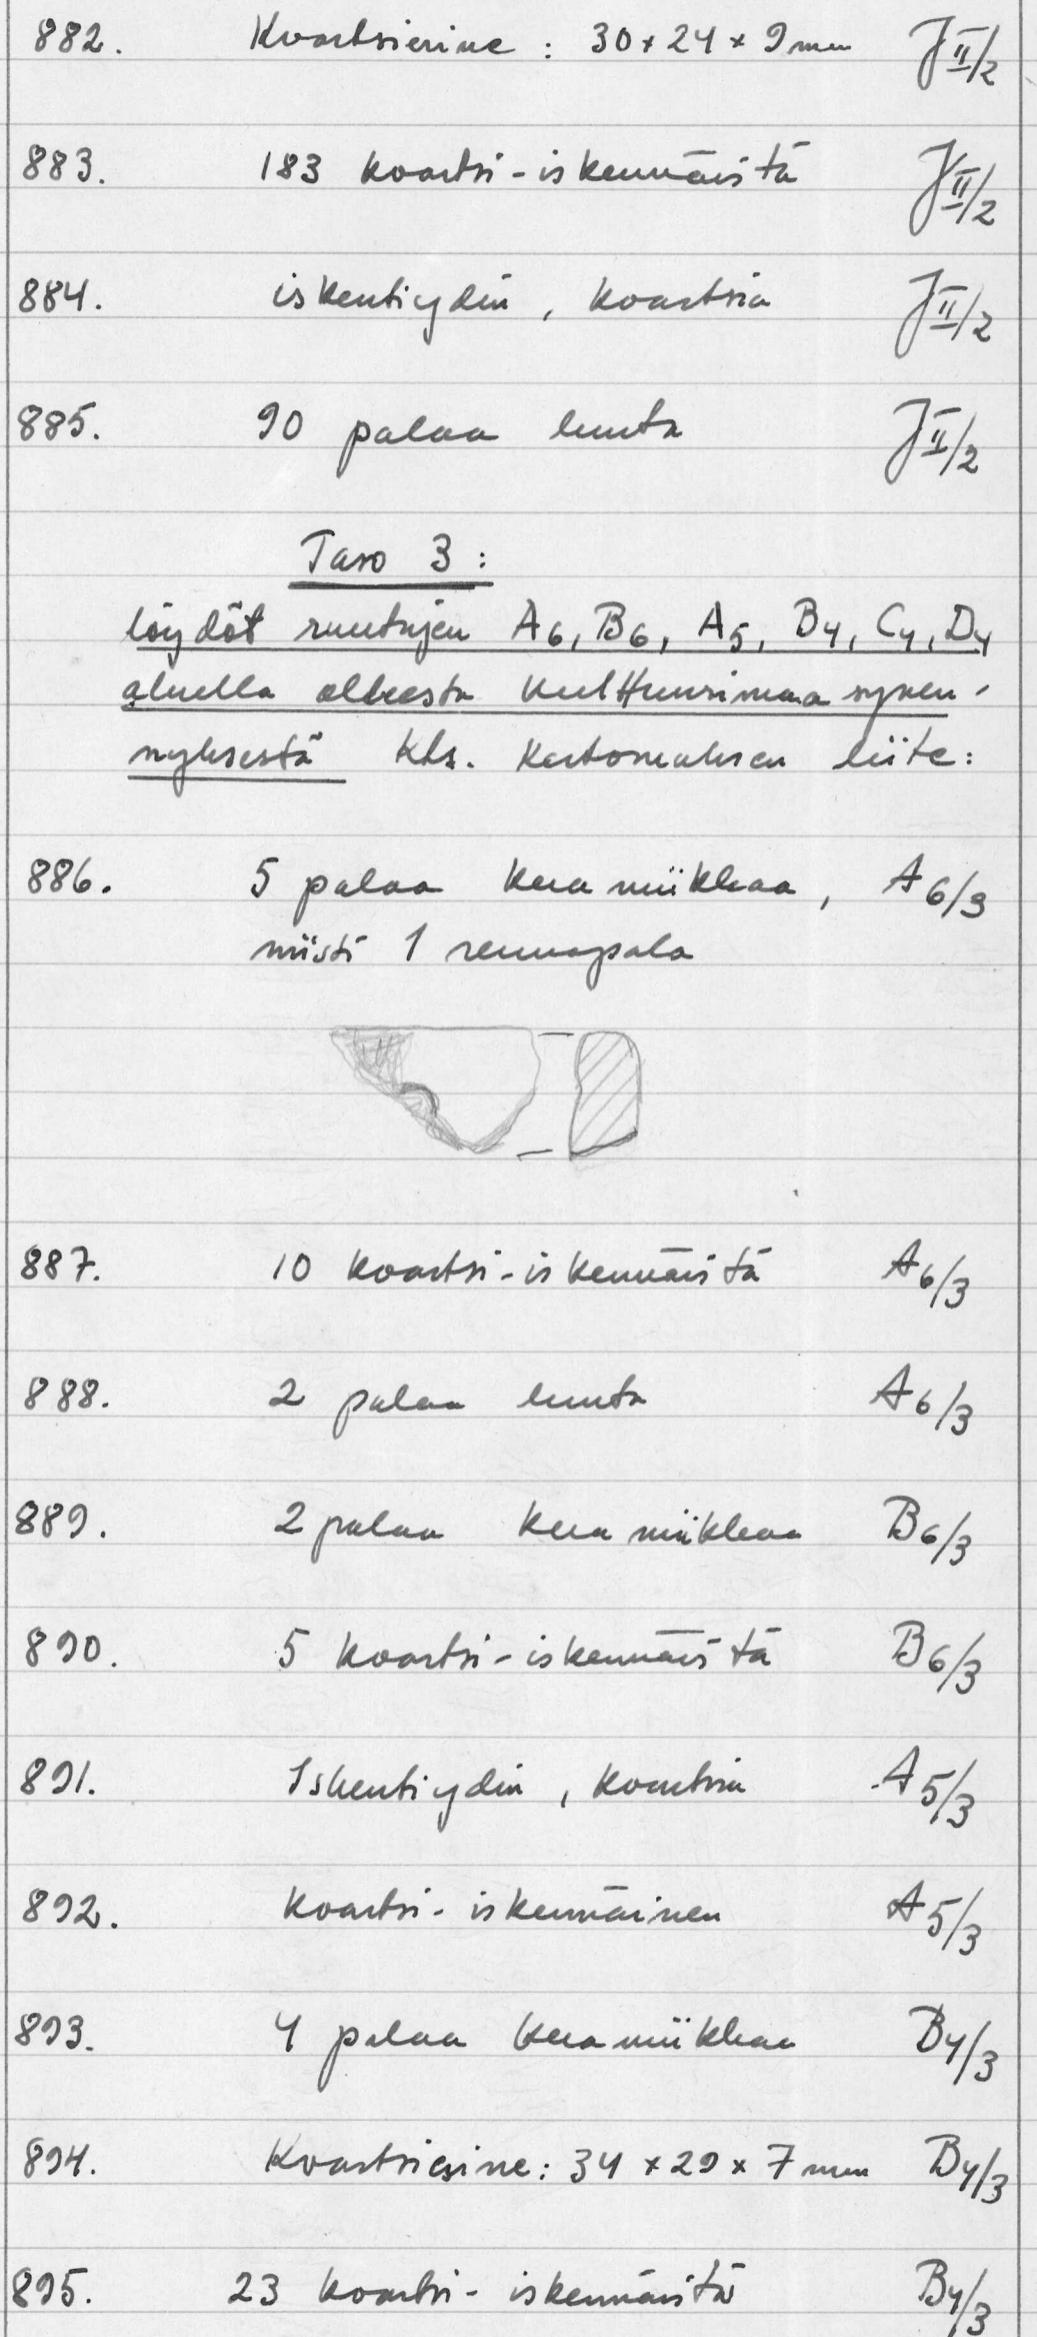 882. Kvartsiesine : 30 x 24 x 9 mm J II/2
883. 183 kvartsi-iskennäistä J II/2
884. iskentiydin, kvartsia J II/2
885. 90 palaa luuta J II/2
Taso 3 :
löydöt ruutujen A6, B6, A5, B4, C4, D4
aluella olleesta kulttuurimaa syven-
nyksestä kts. kertomuksen liite:
886. 5 palaa keramiikkaa, A6/3
niistä 1 reunapala
887. 10 kvartsi-iskennäistä A6/3
888. 2 palaa luuta A6/3
889. 2 palaa keramiikkaa B6/3
890. 5 kvartsi-iskennäistä B6/3
891. Iskentiydin, kvartsia A5/3
892. kvartsi-iskennäinen A5/3
893. 4 palaa keramiikkaa B4/3
894. Kvartsiesine: 34 x 29 x 7 mm B4/3
895. 23 kvartsi-iskennäistä B4/3